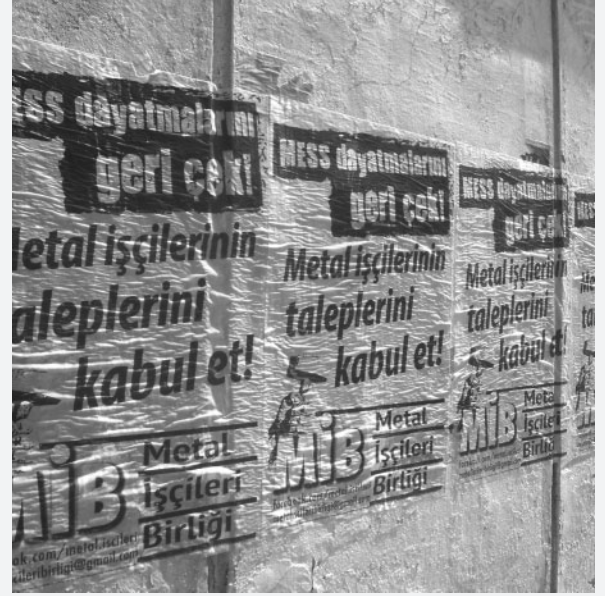 MESS dayatmalarını
geri çek!
Metal işçilerinin
taleplerini
kabul et!
MİB
Metal
İşçileri
Birliği
MESS dayatmalarını
geri çek!
Metal işçilerinin
taleplerini
kabul et!
MİB
Metal
İşçileri
Birliği
MESS dayatmalarını
geri çek!
Metal işçilerinin
taleplerini
kabul et!
MİB
Metal
İşçileri
Birliği